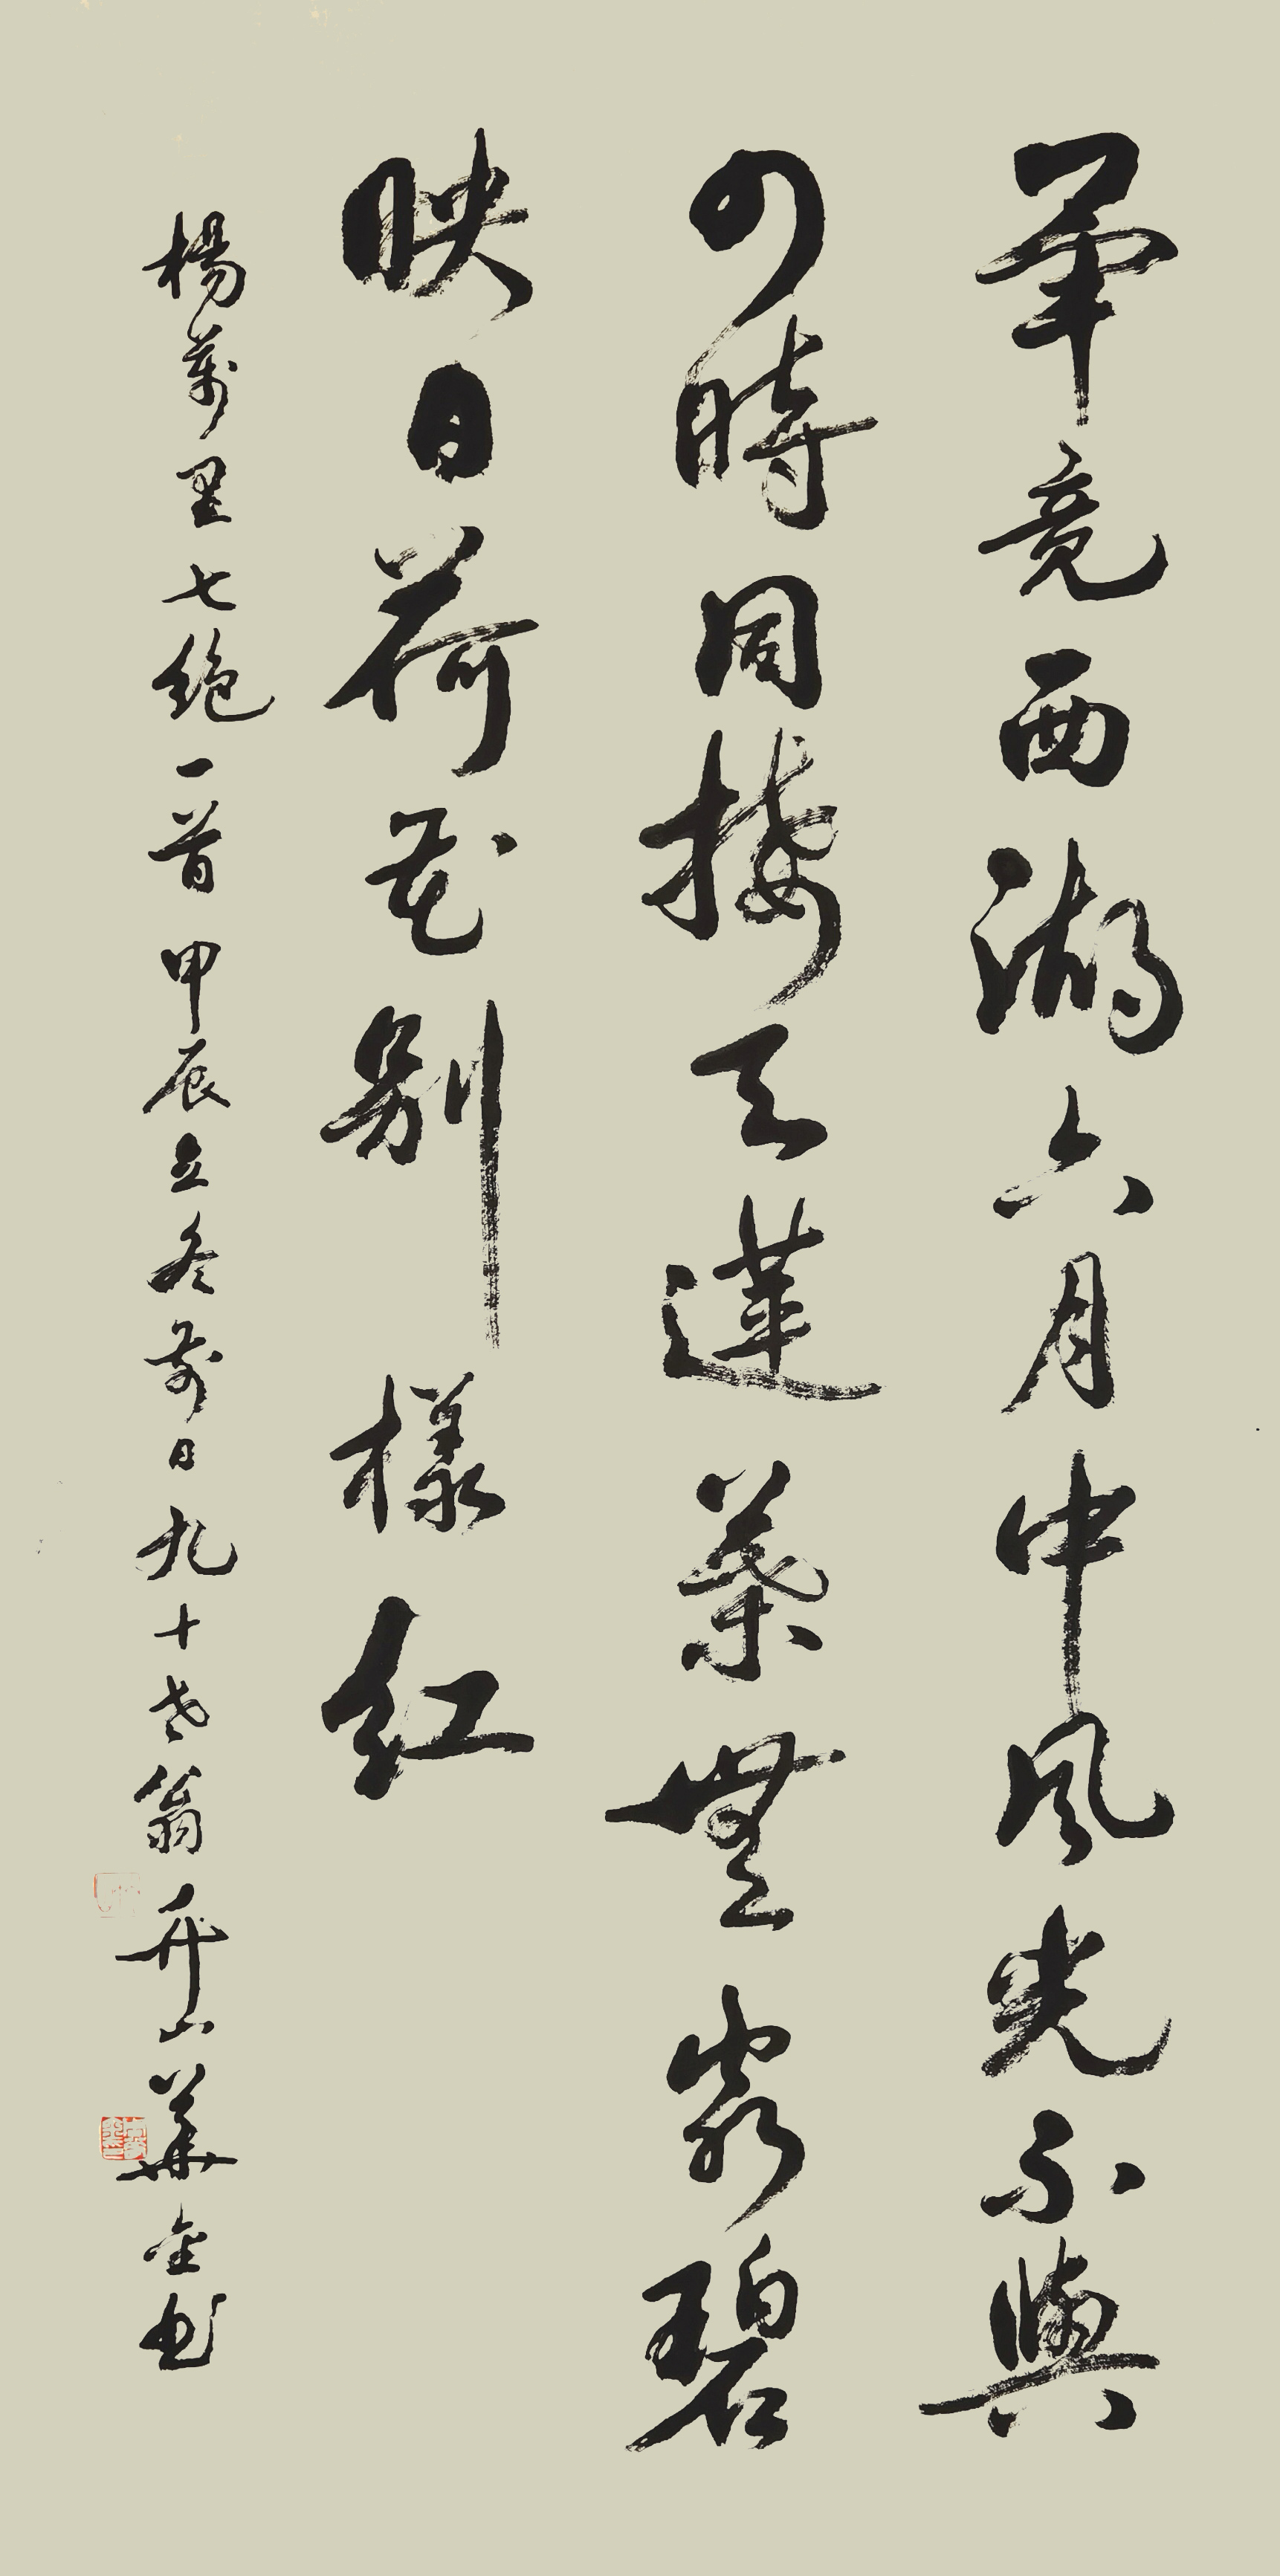 畢竟西湖六月中風光不與
四時同接天蓮葉無窮碧
映日荷花別樣紅
楊萬里七絕一首甲辰立冬前日九十老翁升山華金書